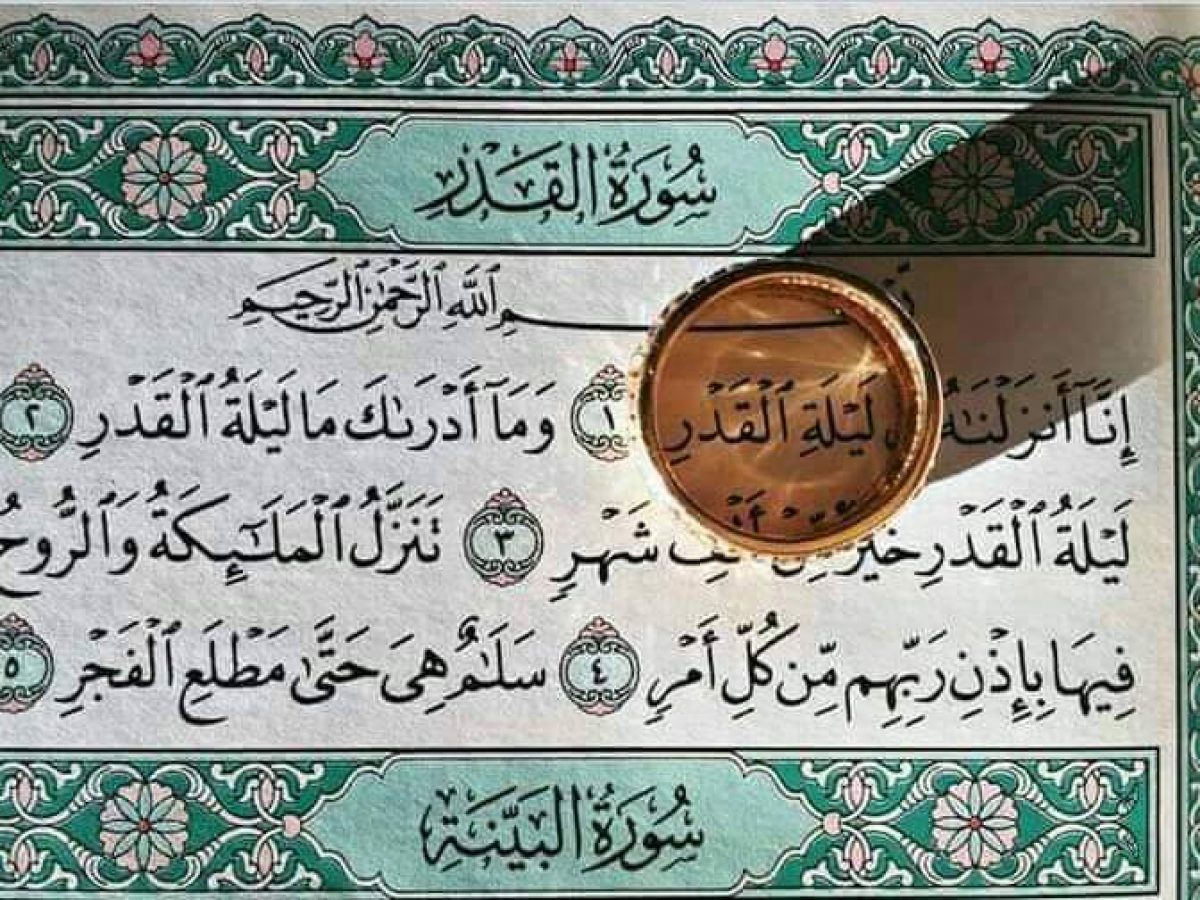 سُورَةُ القَدْرِ
ٱللَّهِ ٱلرَّحْمَٰنِ ٱلرَّحِيمِ
إِنَّآ أَنزَلْنَٰهُ لَيْلَةِ ٱلْقَدْرِ ١ وَمَآ أَدْرَىٰكَ مَا لَيْلَةُ ٱلْقَدْرِ ٢
لَيْلَةُ ٱلْقَدْرِ خَيْرٌ مِّنْ أَلْفِ شَهْرٍ ٣ تَنَزَّلُ ٱلْمَلَٰٓئِكَةُ وَٱلرُّوحُ
فِيهَا بِإِذْنِ رَبِّهِم مِّن كُلِّ أَمْرٍ ٤ سَلَٰمٌ هِىَ حَتَّىٰ مَطْلَعِ ٱلْفَجْرِ ٥
سُورَةُ البَيِّنَةِ